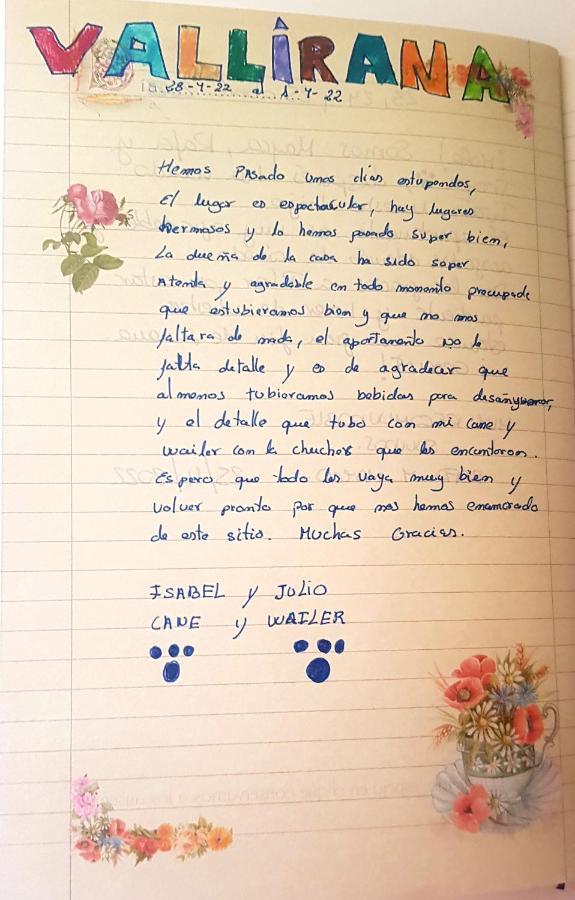 VALLIRANA
Dia 28-4-22 al 1-4-22
Hemos Pasado unos dias estupendos,
El lugar es espectacular, hay lugares
hermosos y lo hemos pasado super bien,
La dueña de la casa ha sido super
Atenta y agradable en todo momento procupade
que estubieramos bien y que no nos
faltara de nada, el apartamento no le
falta detalle y es de agradecer que
al menos tubieramos bebidas para desayunar,
y el detalle que tubo con mi cane y
wailer con la chuches que les encantaron.
Espero que todo les vaya muy bien y
volver pronto por que nos hemos enamorado
de este sitio. Muchas Gracias.
ISABEL y JULIO
CANE y WAILER